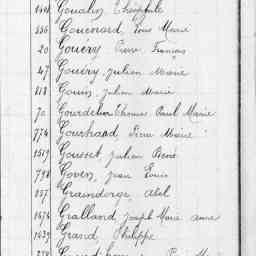 Goualin Théophile
336 Gouenard Louis Marie
20 Gouëry Pierre François
47 Gouëry Julien Marie
818 Gouin Julien Marie
70 Gourdelier Thomas Paul Marie
774 Gourhand Pierre Marie
1519 Gousset Julien René
798 Goven Jean Louis
857 Graindorge Abel
1474 Gralland Joseph Marie Anne
1439 Grand Philippe